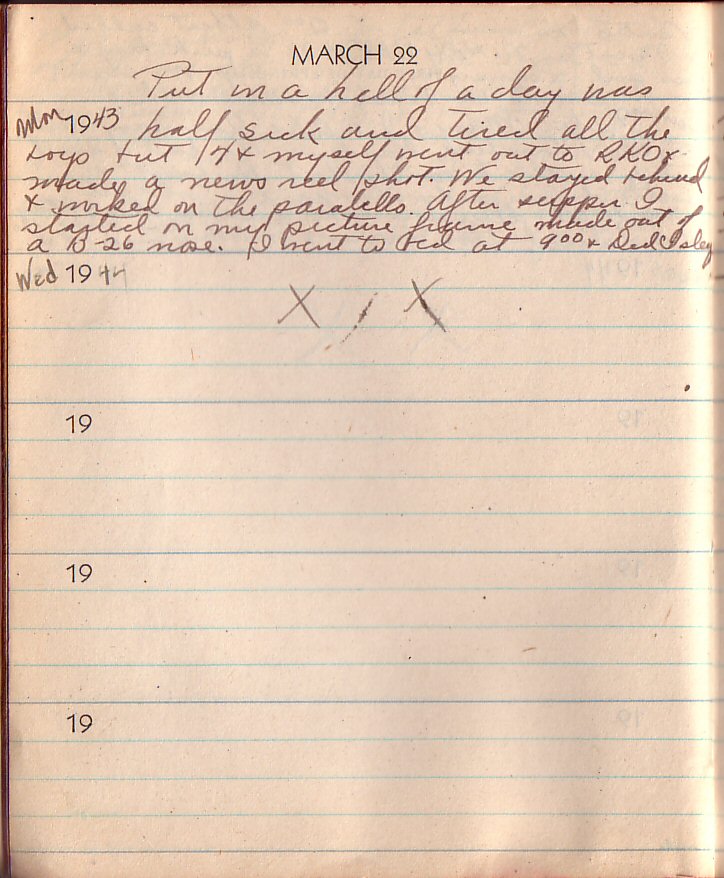 MARCH 22
Put in a hell of a day was
Mon 1943 half sick and tired all the
boys but 4 + myself went out to RKO +
made a news reel shot. We stayed behind
+ worked on the paratello. After supper I
started on my picture frame made out of
a B-26 nose. I went to bed at 900 +
Wed 1944
X , X
19
19
19